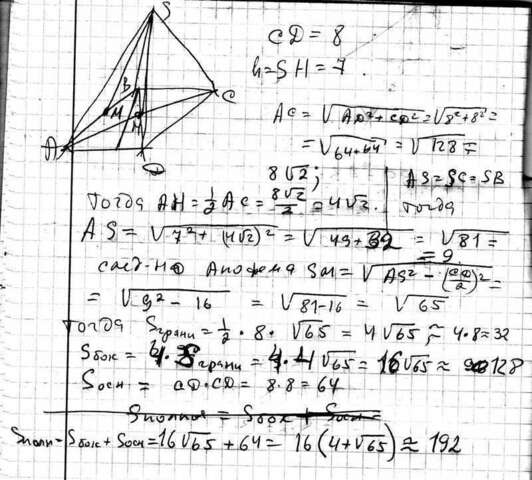 S
B
C
M
H
A
D
CD = 8
h = SH = 7
AC = √AD²+CD² = √8²+8² =
= √64+64 = √128 =
8√2;
AS = SC = SB
тогда AH = 1/2 AC = 8√2/2 = 4√2. тогда
AS = √7²+(4√2)² = √49+32 = √81 =
= 9
след-но Апофема SM = √AS² - (CD/2)² =
= √9² - 16 = √81-16 = √65
тогда Sграни = 1/2 · 8 · √65 = 4√65 ≈ 4·8 = 32
Sбок = 4·Sграни = 4·4√65 = 16√65 ≈ 128
Sосн = CD·CD = 8·8 = 64
Sполн = Sбок + Sосн =
Sполн = Sбок + Sосн = 16√65 + 64 = 16(4+√65) ≈ 192